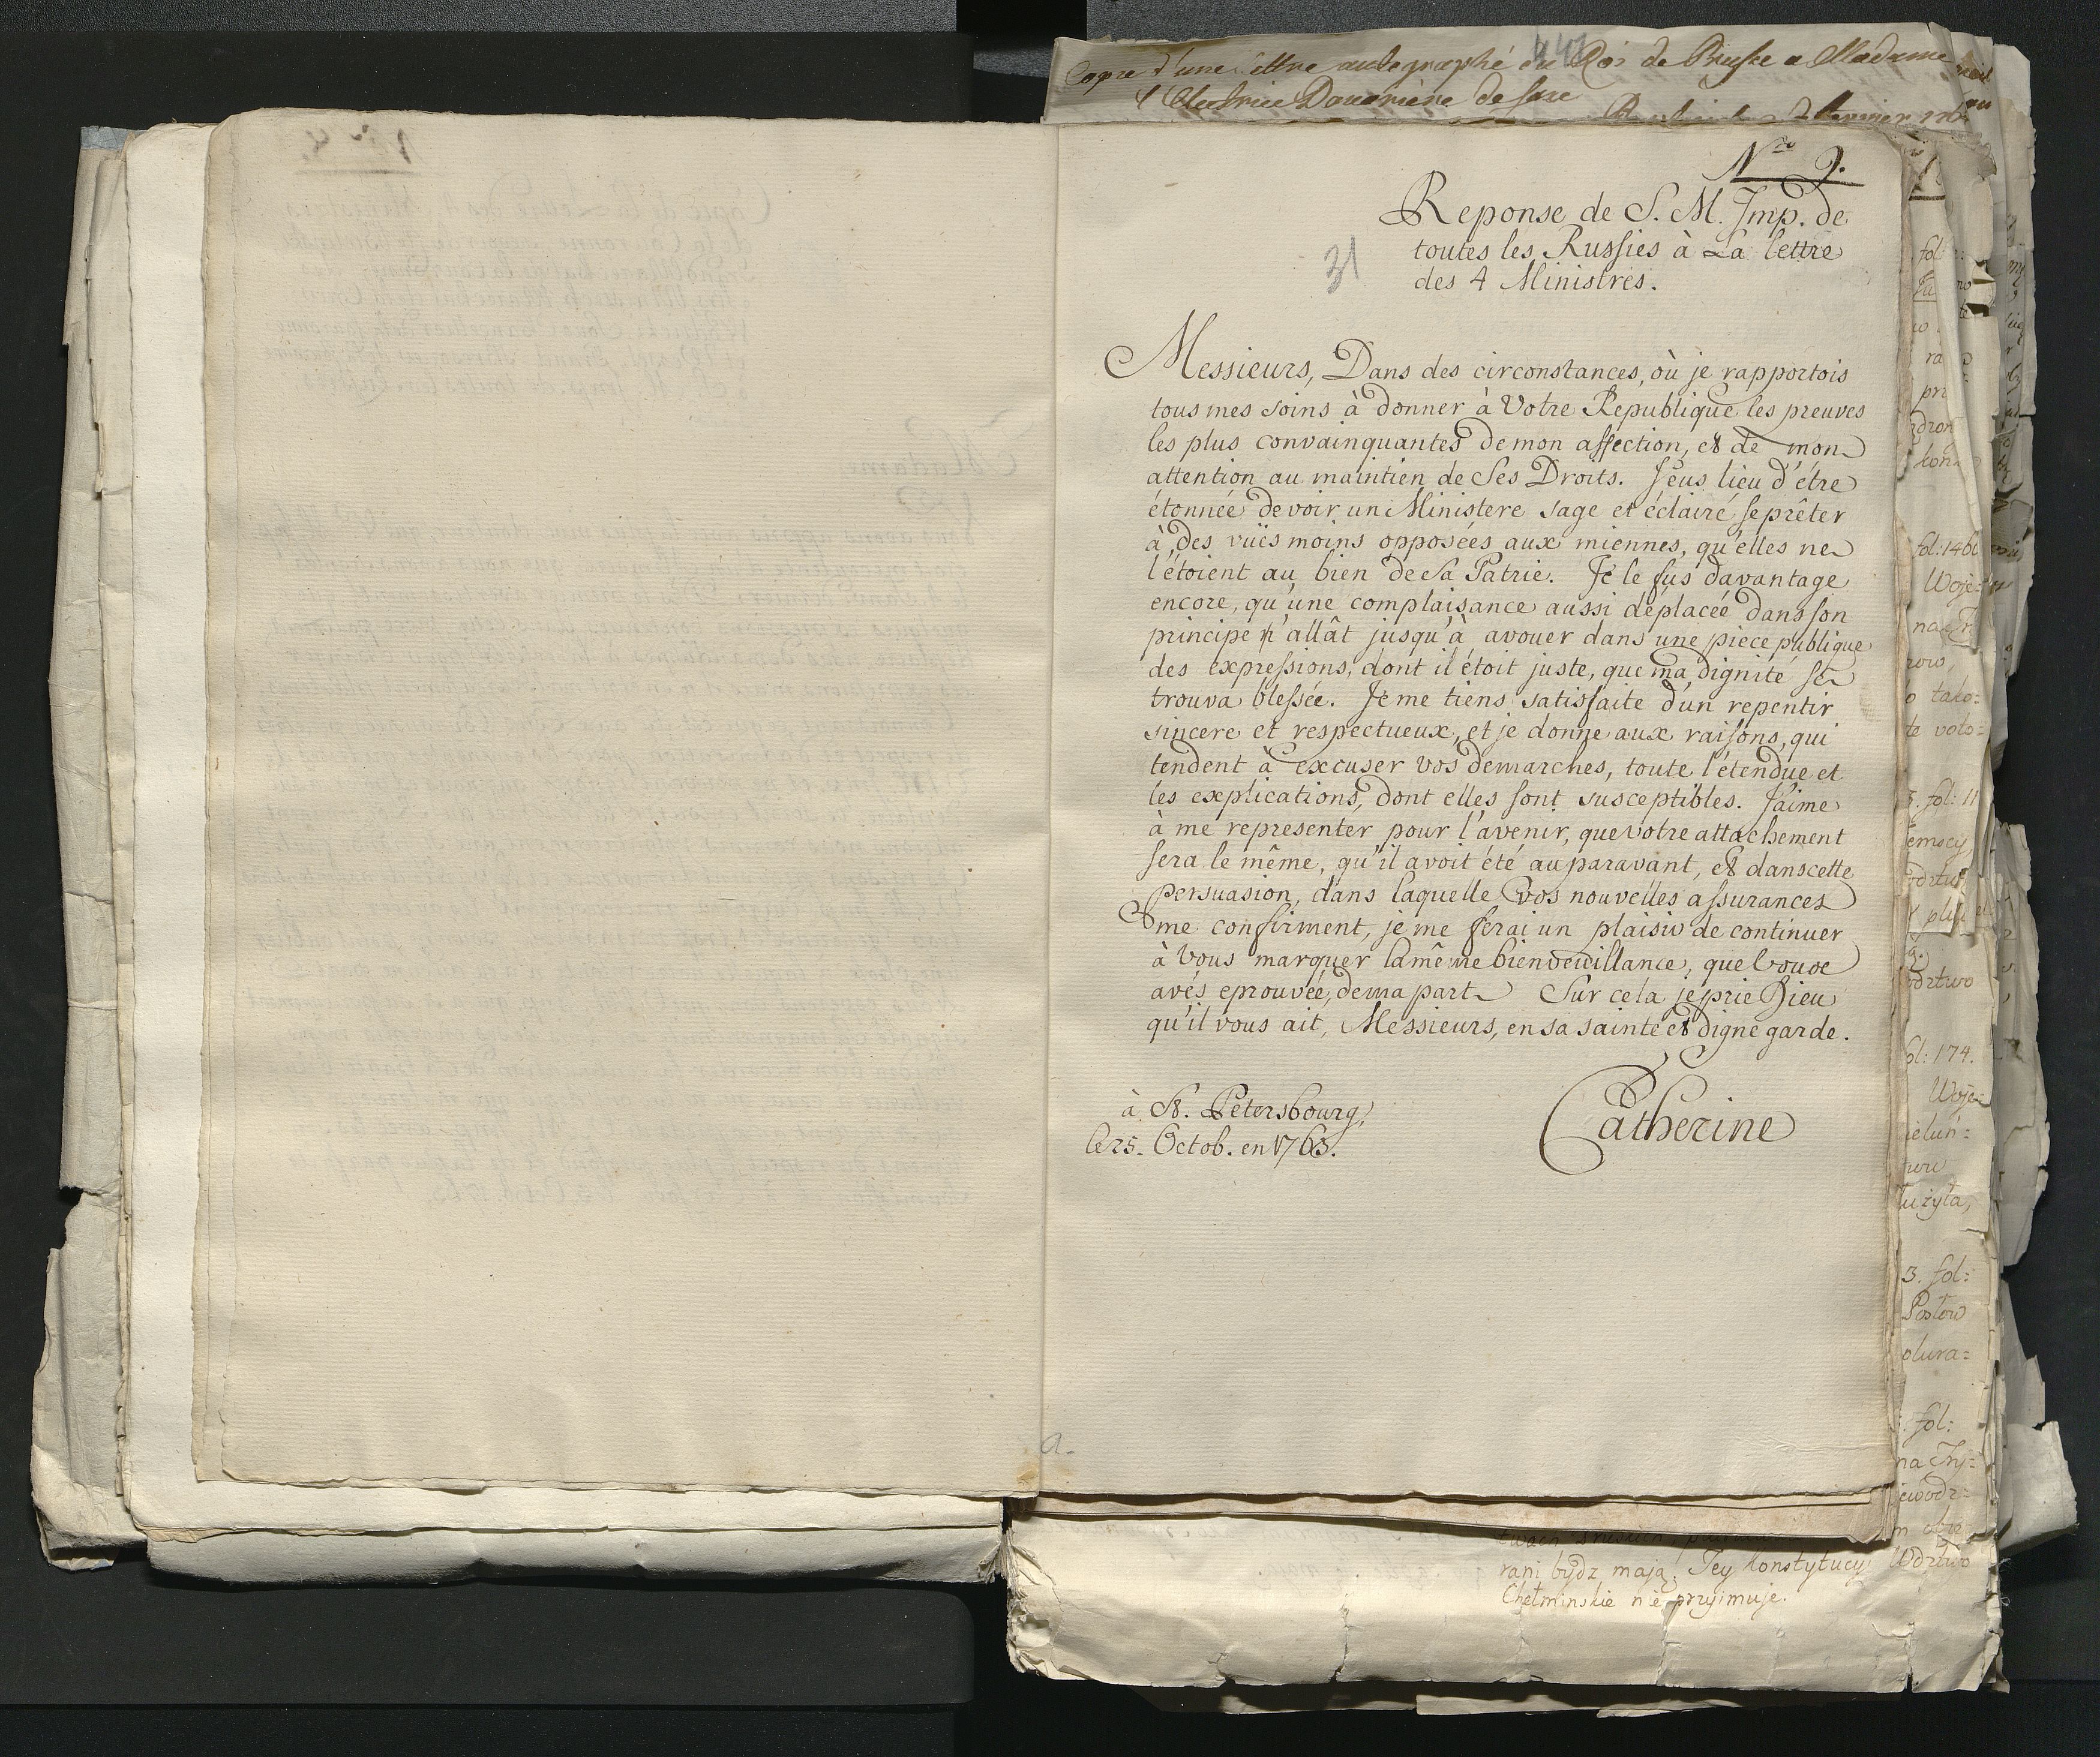 Copie d'une lettre autographé du Roi de Prusse a Madame
l'Electrice Douariere de Saxe
Nro 9.
Reponse de S. M. Imp. de
toutes les Russies à La lettre
des 4 Ministres.
31
Messieurs, Dans des circonstances, où je rapportois
tous mes soins à donner à Votre Republique les preuves
les plus convainquantes de mon affection, et de mon
attention au maintien de Ses Droits. J'eus lieu d'étre
étonnée de voir un Ministere sage et éclairé se prêter
à des vües moins opposées aux miennes, qu'elles ne
l'étoient au bien de Sa Patrie. Je le fus davantage
encore, qu'une complaisance aussi déplacée dans son
principe allât jusqu'à avouer dans une piece publique
des expressions, dont il étoit juste, que ma dignité se
trouva blessée. Je me tiens satisfaite d'un repentir
sincere et respectueux, et je donne aux raisons, qui
tendent à excuser vos demarches, toute l'étendüe et
les explications, dont elles sont susceptibles. J'aime
à me representer pour l'avenir, que votre attachement
sera le même, qu'il avoit été auparavant, et dans cette
persuasion, dans laquelle vos nouvelles assurances
me confirment, je me ferai un plaisir de continuer
à Vous marquer la même bienveuillance, que Vous
avés eprouvée, de ma part Sur cela je prie Dieu
qu'il vous ait, Messieurs, en sa sainte et digne garde.
à St. Petersbourg,
le 25. Octob. en 1763.
Catherine
a.
rani bydz mają. Tey konstytucyi Wdztwo
Chełminskie nie przyimuje.
fol: 146
Woje=
o tako=
te voto=
fol: 11
fol: 174.
Woje=
3. fol:
Posłow
fol: